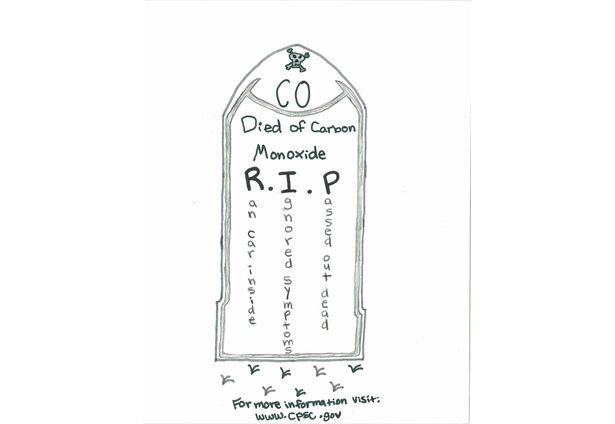 CO
Died of Carbon
Monoxide
R.I.P
Ran car inside
Ignored symptoms
Passed out dead
For more information visit:
www.CPSC.gov